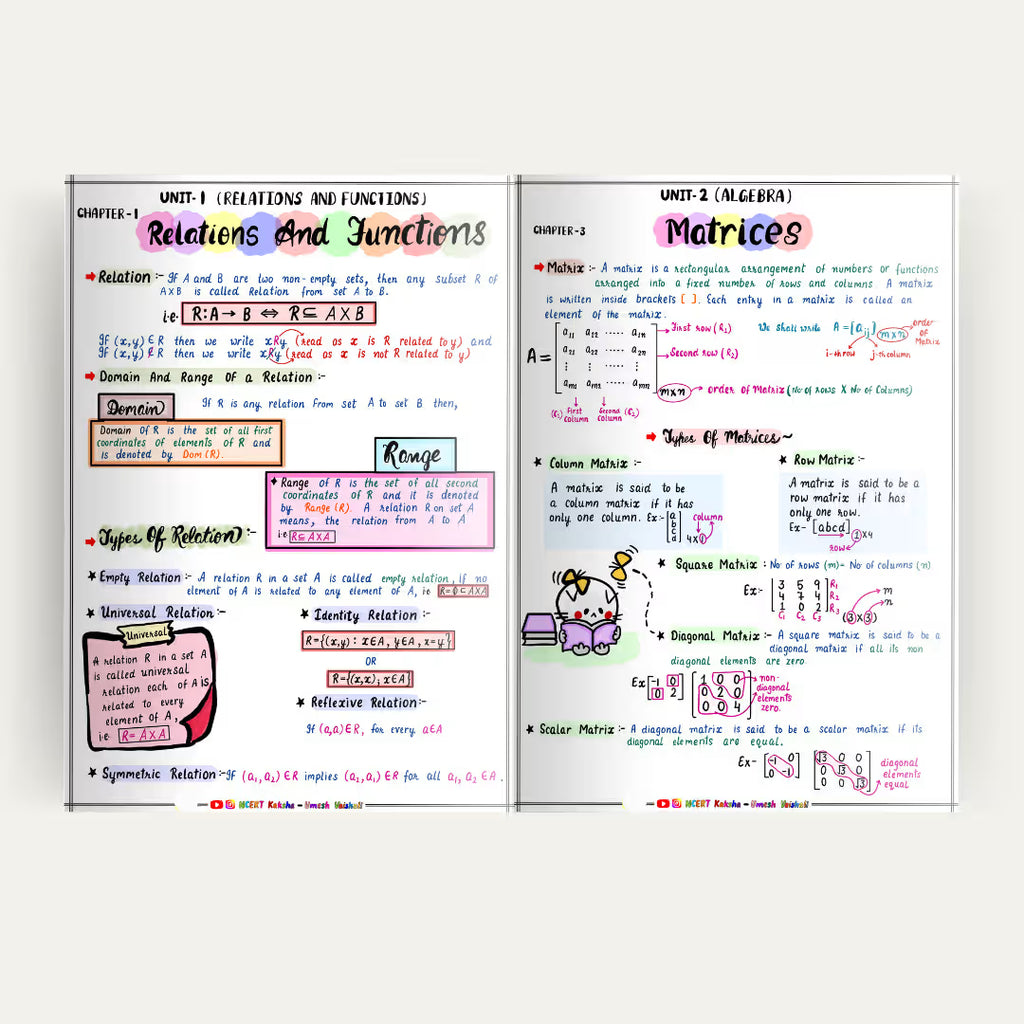 UNIT-1 (RELATIONS AND FUNCTIONS)
CHAPTER-1
Relations And Functions
Relation :- If A and B are two non-empty sets, then any subset R of
A X B is called Relation from set A to B.
i.e. R: A → B ⇔ R ⊆ A X B
If (x,y) ∈ R then we write x R y (read as x is R related to y) and
If (x,y) ∉ R then we write x R y (read as x is not R related to y)
Domain And Range Of a Relation :-
Domain
If R is any relation from set A to set B then,
Domain Of R is the set of all first
coordinates of elements of R and
is denoted by Dom (R).
Range
Range of R is the set of all second
coordinates of R and it is denoted
by Range (R). A relation R on set A
means, the relation from A to A
i.e R ⊆ A X A
Types Of Relation :-
Empty Relation :- A relation R in a set A is called empty relation, if no
element of A is related to any element of A, ie R=Φ⊂AXA
Universal Relation :-
Universal
A relation R in a set A
is called universal
relation each of A is
related to every
element of A,
i.e R= A X A
Identity Relation :-
R={(x,y) : x∈A, y∈A, x=y}
OR
R={(x,x); x∈A}
Reflexive Relation :-
If (a,a) ∈ R, for every a∈A
Symmetric Relation :- If (a₁,a₂) ∈ R implies (a₂,a₁) ∈ R for all a₁, a₂ ∈ A.
NCERT Kaksha - Umesh Vaishali
UNIT-2 (ALGEBRA)
CHAPTER-3
Matrices
Matrix :- A matrix is a rectangular arrangement of numbers or functions
arranged into a fixed number of rows and columns A matrix
is written inside brackets [ ]. Each entry in a matrix is called an
element of the matrix.
A = a₁₁ a₂₂ ..... a₁ₙ
a₂₁ a₂₂ ..... a₂ₙ
⋮ ⋮ ..... ⋮
aₘ₁ aₘ₂ ..... aₘₙ m×n
First row (R₁)
Second row (R₂)
We shall write A = [aᵢⱼ] m×n
order of Matrix
i-th row j-th column
order of Matrix (No of rows X No of Columns)
(C₁) First column Second column (C₂)
Types Of Matrices ~
Column Matrix :-
A matrix is said to be
a column matrix if it has
only one column. Ex:- [a b c] column
4X1
Row Matrix :-
A matrix is said to be a
row matrix if it has
only one row.
Ex- [abcd] 1X4
row
Square Matrix : No of rows (m)= No of columns (n)
Ex:- 3 5 9 R₁
4 7 4 R₂
1 0 2 R₃
C₁ C₂ C₃ (3 X 3)
m
n
Diagonal Matrix :- A square matrix is said to be a
diagonal matrix if all its non
diagonal elements are zero.
Ex [-1 0
0 2]
1 0 0
0 2 0
0 0 4
non-
diagonal
elements
zero.
Scalar Matrix :- A diagonal matrix is said to be a scalar matrix if its
diagonal elements are equal.
Ex- [-1 0
0 -1]
√3 0 0
0 √3 0
0 0 √3
diagonal
elements
equal
NCERT Kaksha - Umesh Vaishali